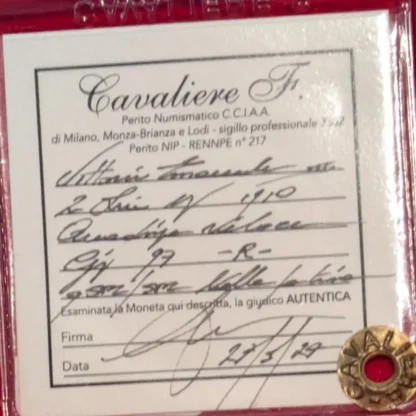 CAVALIERE F.
Cavaliere F.
Perito Numismatico C.C.I.A.A.
di Milano, Monza-Brianza e Lodi - sigillo professionale
Perito NIP - RENNPE n° 217
Vittorio Emanuele
2 Lire 1910
Quadriga Veloce
Gig 97 -R-
Esaminata la Moneta qui descritta, la giudico AUTENTICA
Firma
Data 27/3/24
CAVALIERE